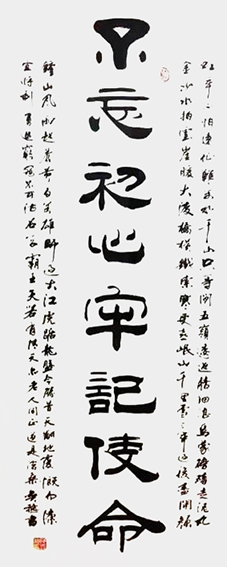 红軍不怕遠征難萬水千山只等閑五嶺逶迤騰細浪烏蒙磅礴走泥丸
金沙水拍雲崖暖大渡橋橫鐵索寒更喜岷山千里雪三軍過後盡開顏
不忘初心牢記使命
鍾山風雨起蒼黄百萬雄師過大江虎踞龍盤今勝昔天翻地覆慨而慷
宜將剩勇追窮寇不可沽名學霸王天若有情天亦老人間正道是滄桑